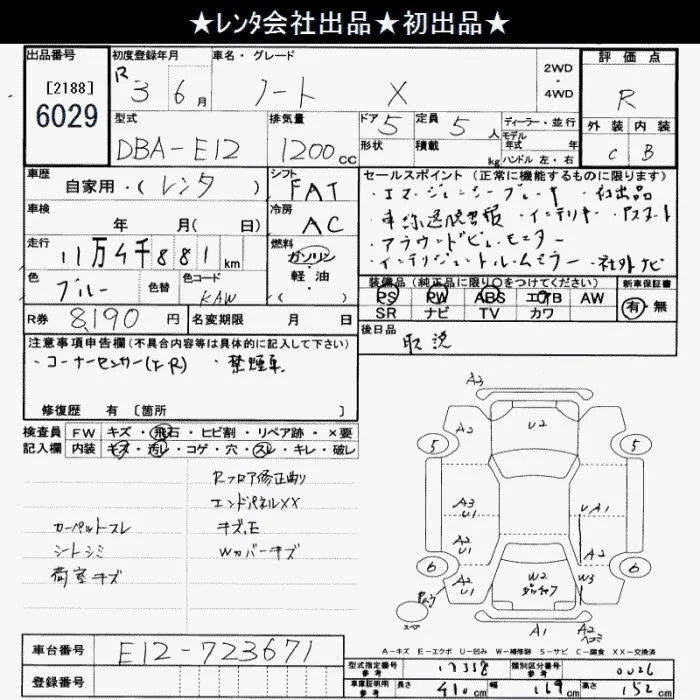 ★レンタ会社出品★初出品★
出品番号 初度登録年月 車名・グレード 評価点
[2188]
6029
R 3 6月 ノート X 2WD・4WD R
型式 排気量 ドア 定員 ディーラー・並行 外装 内装
DBA-E12 1200cc 5 5人 モデル年式 年 C B
形状 積載 kg ハンドル 左・右
車歴 シフト セールスポイント(正常に機能するものに限ります)
自家用・(レンタ) FAT ・エマージェンシーブレーキ ・社出品
車検 冷房 ・インテリキー ・Pスタート
年 月(日) AC ・アラウンドビューモニター
走行 燃料 ・インテリジェントルームミラー ・社外ナビ
11万4千881km ガソリン・軽油・( )
色 色替 色コード 装備品(純正品に限り○をつけてください) 新車保証書
ブルー KAW PS PW ABS エアB AW 有・無
SR ナビ TV カワ
R券 8,190円 名変期限 月 日 後日品
取説
注意事項申告欄(不具合内容等は具体的に記入して下さい)
・禁煙車
修復歴 有 [箇所 ]
検査員記入欄 FW キズ・飛石・ヒビ割・リペア跡・×要
内装 キズ・汚レ・コゲ・穴・スレ・キレ・破レ
Rフロア修正曲り
エンドパネルXX
カーペットスレ
シートシミ Wカバーキズ
荷室キズ
A3
A2 U2
5 5
A3 U1 UA1
A2 U1 A2
6 6
A2 U1 W2 W3
スペア A1 A2
A-キズ E-エクボ U-凹み W-補修跡 S-サビ C-腐食 XX-交換済
車台番号 E12-723671
登録番号
型式指定番号 参考 17358 類別区分番号 参考 0026
車庫証明用 参考 長さ 410cm 幅 169cm 高さ 152cm